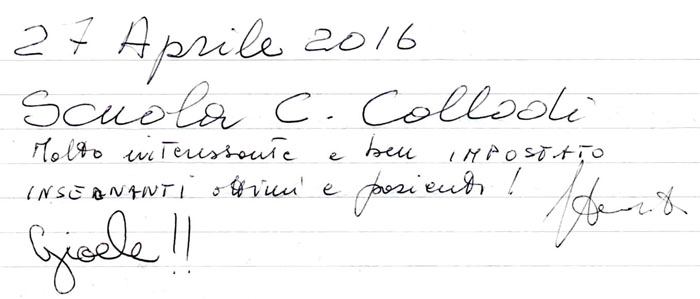 27 Aprile 2016
Scuola C. Collodi
Molto interessante e ben IMPOSTATO
INSEGNANTI ottimi e pazienti!
Gioele!!